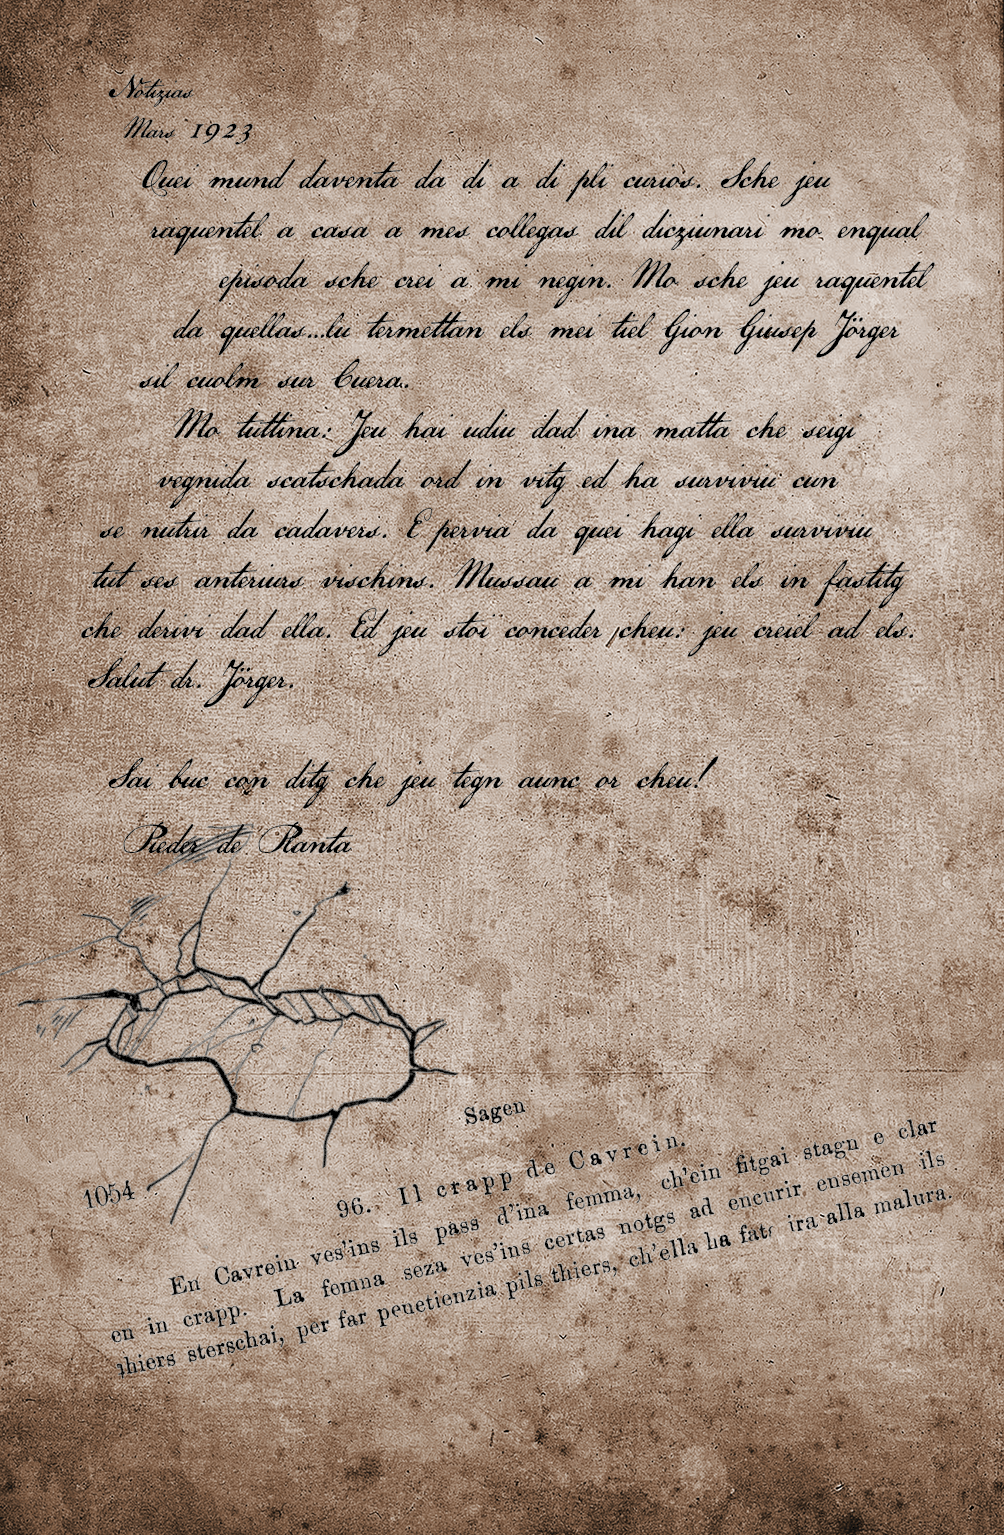 Notizias
Mars 1923
Quei mund daventa da di a di pli curiòs. Sche jeu
raquentel a casa a mes collegas dil dicziunari mo enqual
episoda sche crei a mi negin. Mo sche jeu raquentel
da quellas...lu termettan els mei tiel Gion Giusep Jörger
sil cuolm sur Cuera.
Mo tuttina: Jeu hai udiu dad ina matta che seigi
vegnida scatschada ord in vitg ed ha surviviu cun
se nutrir da cadavers. E pervia da quei hagi ella surviviu
tut ses anteriurs vischins. Mussau a mi han els in fastitg
che derivi dad ella. Ed jeu stoi conceder cheu: jeu creiel ad els.
Salut dr. Jörger.
Sai buc con ditg che jeu tegn aunc or cheu!
Pieder de Ranta
Sagen
1054
96. Il crapp de Cavrein.
En Cavrein ves'ins ils pass d'ina femma, ch'ein fitgai stagn e clar
en in crapp. La femna seza ves'ins certas notgs ad encurir ensemen ils
thiers sterschai, per far penetienzia pils thiers, ch'ella ha fatg ira alla malura.